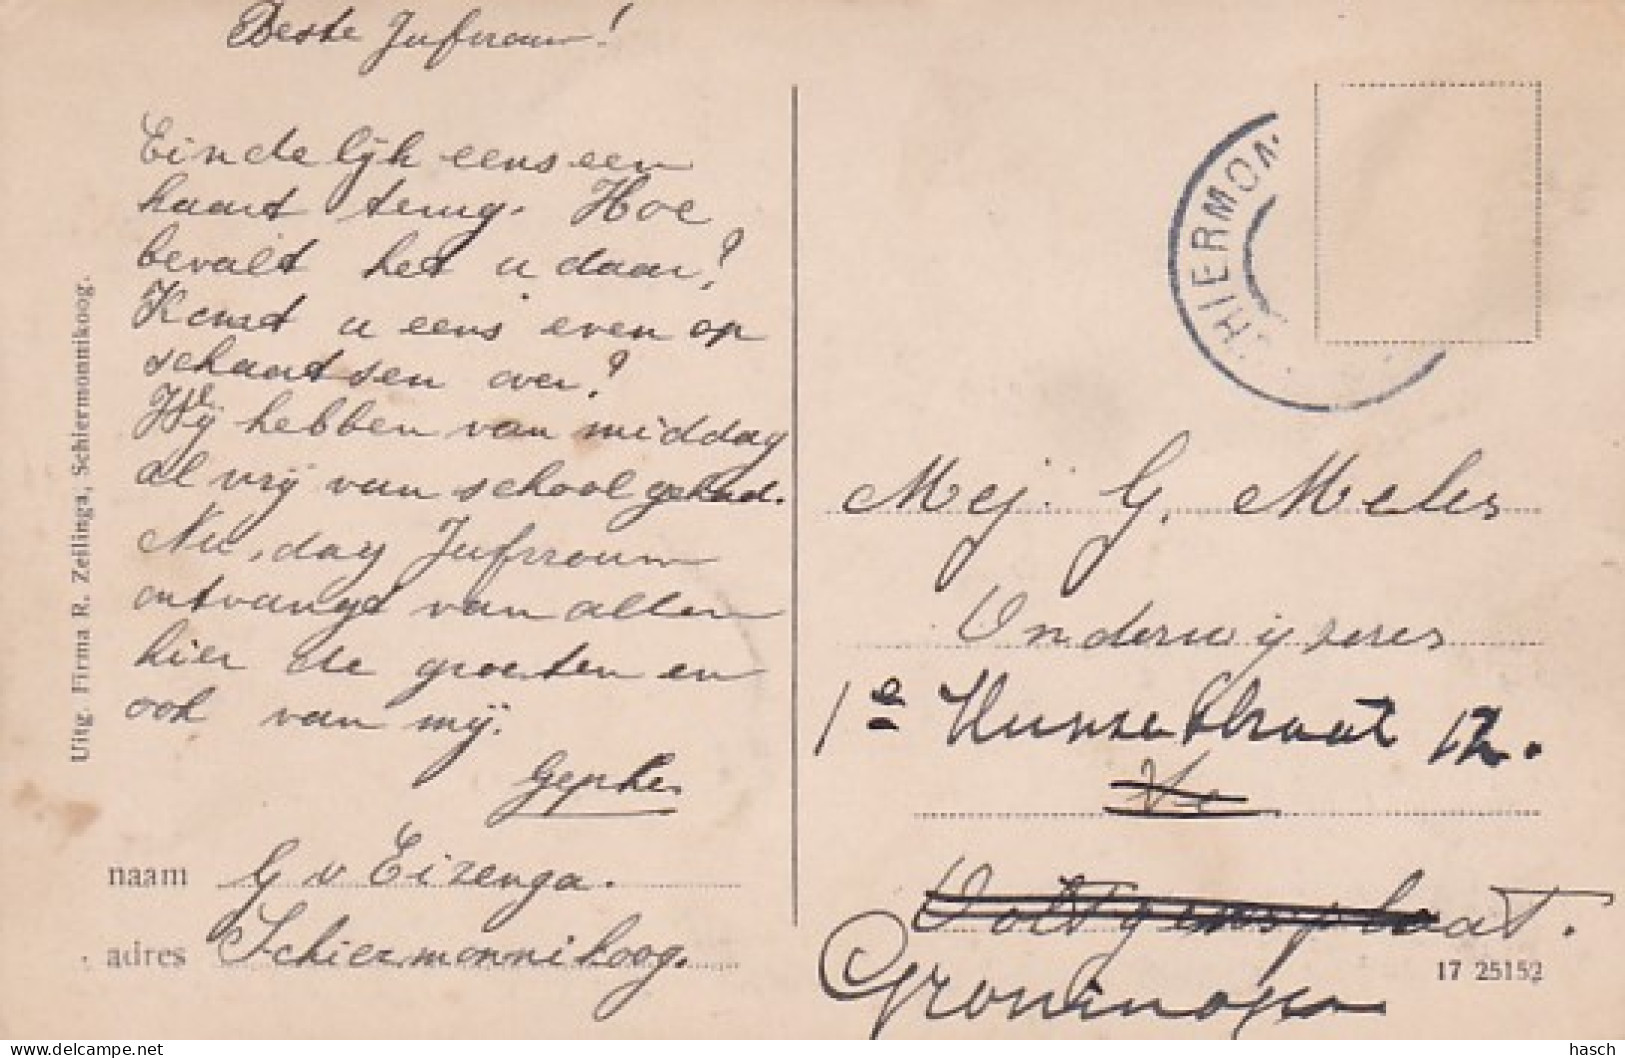 Beste Jufrouw!
Eindelijk eens een
kaart terug. Hoe
bevalt het u daar?
Komt u eens even op
schaatsen over?
Wij hebben van middag
al vrij van school gehad.
Nu, dag Jufrrouw
ontvangt van allen
hier de groeten en
ook van mij.
Gepke.
naam G v Eizenga.
adres Schiermonnikoog.
Uitg. Firma R. Zeilinga, Schiermonnikoog.
CHIERMON
Mej. G. Meles
Onderwijzeres
1e Hunsestraat 12.
Groningen
17 25152
hasch